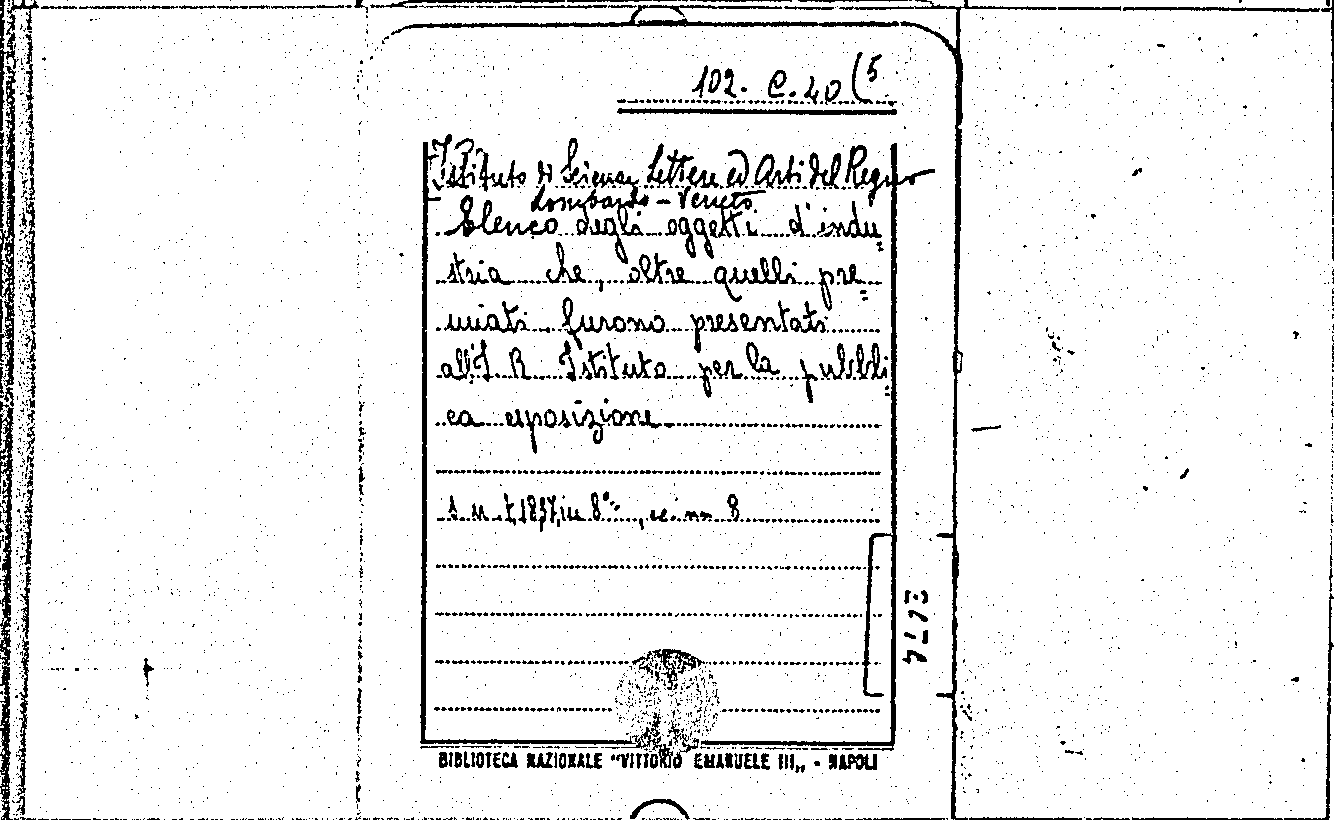 102. C. 40 (5
I. R.
Istituto di Scienze Lettere ed Arti del Regno
Lombardo - Veneto
Elenco degli oggetti d'indu=
stria che, oltre quelli pre=
miati furono presentati
all'I. R. Istituto per la pubbli=
ca esposizione
s. n. t. 1837, in 8°, cc. nn 8
BIBLIOTECA NAZIONALE "VITTORIO EMANUELE III„ - NAPOLI